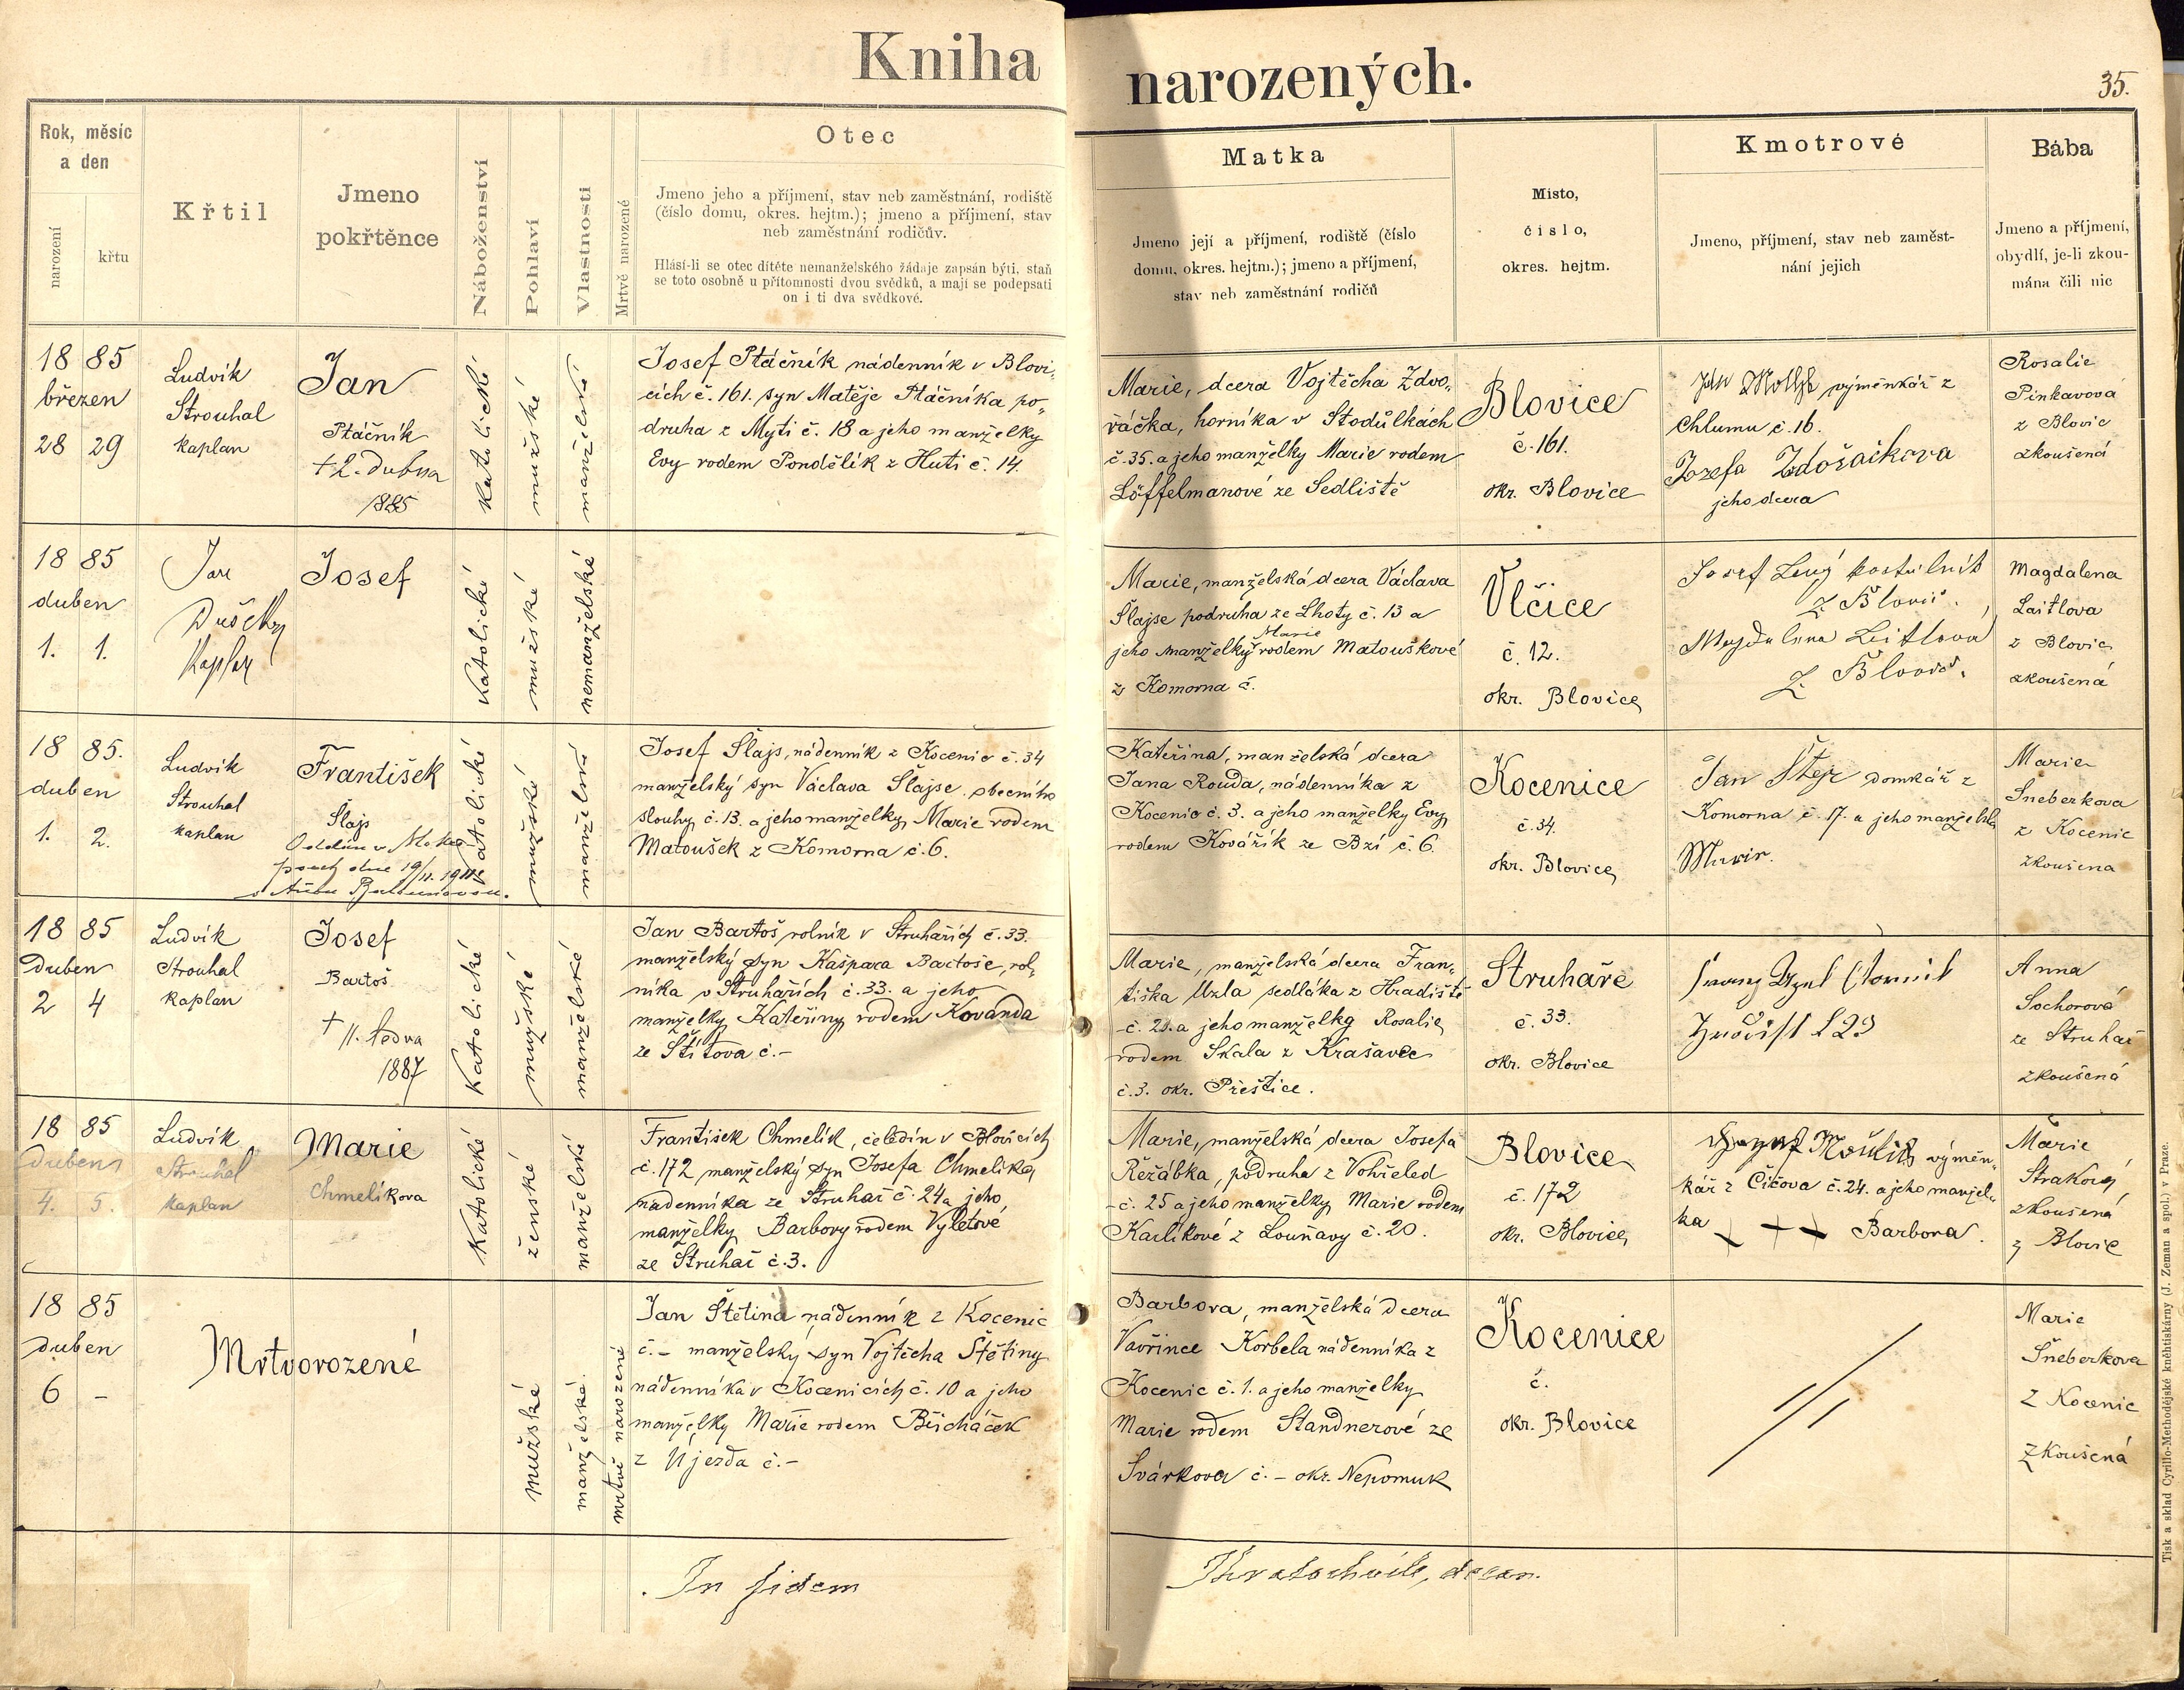 Kniha narozených.
35.
Rok, měsíc
a den
narození
křtu
Křtil
Jmeno
pokřtěnce
Náboženství
Pohlaví
Vlastnosti
Mrtvě narozené
Otec
Jmeno jeho a příjmení, stav neb zaměstnání, rodiště
(číslo domu, okres. hejtm.); jmeno a příjmení, stav
neb zaměstnání rodičův.
Hlásí-li se otec dítěte nemanželského žádaje zapsán býti, staň
se toto osobně u přítomnosti dvou svědků, a mají se podepsati
on i ti dva svědkové.
Matka
Jmeno její a příjmení, rodiště (číslo
domu, okres. hejtm.); jmeno a příjmení,
stav neb zaměstnání rodičů
Místo,
číslo,
okres. hejtm.
Kmotrové
Jmeno, příjmení, stav neb zaměst-
nání jejich
Bába
Jmeno a příjmení,
obydlí, je-li zkou-
mána čili nic
18 85
březen
28 29
Ludvík
Strouhal
kaplan
Jan
Ptáčník
+ 2. dubna
1885
katolické
mužské
manželské
Josef Ptáčník nádenník v Blovi-
cích č. 161. syn Matěje Ptáčníka po-
druha z Mytí č. 18 a jeho manželky
Evy rodem Pondělík z Hutí č. 14.
Marie, dcera Vojtěcha Zdvo-
řáčka, horníka v Stodůlkách
č. 35. a jeho manželky Marie rodem
Löffelmanové ze Sedliště
Blovice
č. 161.
okr. Blovice
výměnkář z
Chlumu č. 16.
Jozefa
jeho dcera
Rosalie
Pinkavová
z Blovic
zkoušená
18 85
duben
1. 1.
Jan
Dušek
Kaplan
Josef
Katolické
mužské
nemanželské
Marie, manželská dcera Václava
Šlajse podruha ze Lhoty č. 13 a
jeho manželky Marie rodem Matouškové
z Komorna č.
Vlčice
č. 12.
okr. Blovice
Josef Levý kostelník
z Blovic,
Magdalena Laitlova
z Blovic.
Magdalena
Laitlova
z Blovic
zkoušená
18 85.
duben
1. 2.
Ludvík
Strouhal
kaplan
František
Šlajs
dne 19/11. 19
katolické
mužské
manželské
Josef Šlajs, nádenník z Kocenic č. 34
manželský syn Václava Šlajse obecního
slouhy č. 13. a jeho manželky Marie rodem
Matoušek z Komorna č. 6.
Kateřina, manželská dcera
Jana Rouda, nádenníka z
Kocenic č. 3. a jeho manželky Evy
rodem Kovářík ze Bzí č. 6.
Kocenice
č. 34.
okr. Blovice
Jan domkář z
Komorna č. 17. a jeho manželka
Marie.
Marie
Šneberkova
z Kocenic
zkoušena
18 85
Duben
2 4
Ludvík
Strouhal
kaplan
Josef
Bartoš
+ 11. ledna
1887
Katolické
mužské
manželské
Jan Bartoš rolník v Struhařích č. 33.
manželský syn Kašpara Bartoše, rol-
níka v Struhařích č. 33. a jeho
manželky Kateřiny rodem Kovanda
ze Štítova č. -
Marie, manželská dcera Fran-
tiška Uzla sedláka z Hradiště
č. 29. a jeho manželky Rosalie
rodem Skala z Krašavec
č. 3. okr. Přeštice.
Struhaře
č. 33.
okr. Blovice
Anna
Sochorová
ze Struhař
zkoušená
18 85
Duben
4. 5.
Ludvík
Strouhal
kaplan
Marie
Chmelíkova
Katolické
ženské
manželské
František Chmelík, čeledín v Blovicích
č. 172 manželský syn Josefa Chmelíka
nadenníka ze Struhař č. 24 a jeho
manželky Barbory rodem Výletové
ze Struhař č. 3.
Marie, manželská dcera Josefa
Řežábka, podruha z Vohřeled
č. 25 a jeho manželky Marie rodem
Karlíkové z Louňavy č. 20.
Blovice
č. 172
okr. Blovice
výměn-
kář z Čičova č. 24. a jeho manžel-
ka + + + Barbora.
Marie
Straková
zkoušená
z Blovic
18 85
duben
6 -
Mrtvorozené
mužské
manželské.
mrtvě narozené
Jan Štětina nádenník z Kocenic
č. - manželský syn Vojtěcha Štětiny
nádenníka v Kocenicích č. 10 a jeho
manželky Marie rodem Břicháček
z Újezda č. -
Barbora, manželská dcera
Vavřince Korbela nádenníka z
Kocenic č. 1. a jeho manželky
Marie rodem Standnerové ze
Svárkova č. - okr. Nepomuk
Kocenice
č.
okr. Blovice
Marie
Šneberkova
z Kocenic
zkoušená
In fidem
decan.
Tisk a sklad Cyrillo-Methodějské knihtiskárny (J. Zeman a spol.) v Praze.